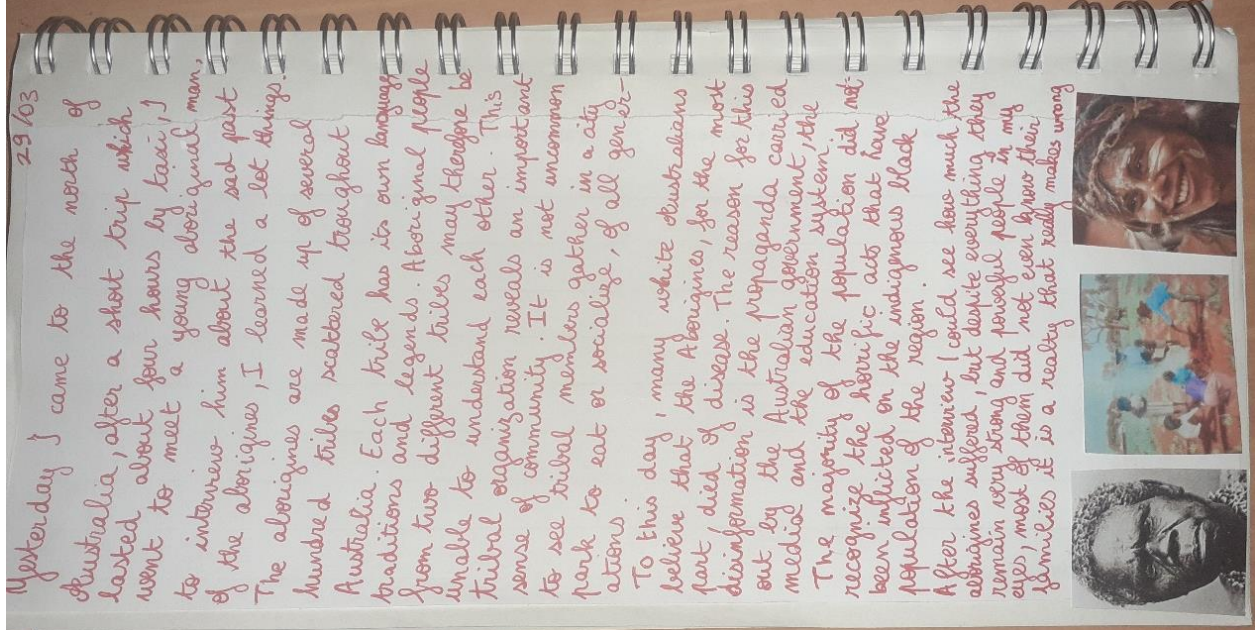 29/03
Yesterday I came to the north of
Australia, after a short trip which
lasted about four hours by taxi, I
went to meet a young aboriginal man,
to interview him about the sad past
of the aborigines, I learned a lot things.
The aborigines are made up of several
hundred tribes scatered troughout
Australia. Each tribe has its own language
traditions and legends. Aboriginal people
from two different tribes may therefore be
unable to understand each other. This
tribal organization reveals an important
sense of community. It is not uncommon
to see tribal members gather in a city
park to eat or socialize, of all gener-
ations.
To this day, many white Australians
believe that the Aborigines, for the most
part died of disease. The reason for this
disinformation is the propaganda carried
out by the Australian government, the
media and the education system.
The majority of the population did not
recognize the horrific acts that have
been inflicted on the indigenous black
population of the region.
After the interview I could see how much the
aborigines suffered, but despite everything they
remain very strong and powerful people in my
eyes, most of them did not even know their
families it is a realty that really makes wrong